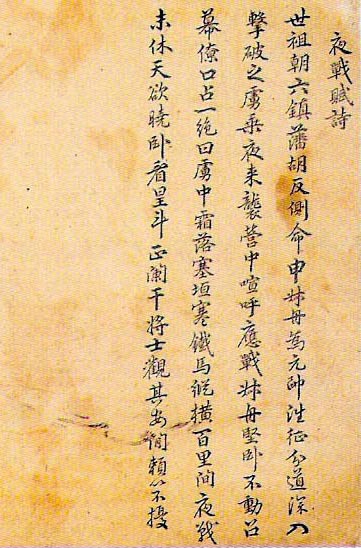 夜戰賦詩
世祖朝六鎮藩胡反側命申叔舟為元帥往征分道深入
擊破之虜乘夜来襲營中喧呼應戰叔舟堅卧不動召
幕僚口占一絶曰虜中霜落塞垣寒鐵馬縱橫百里間夜戰
未休天欲曉卧看星斗正闌干將士觀其安閒賴以不擾